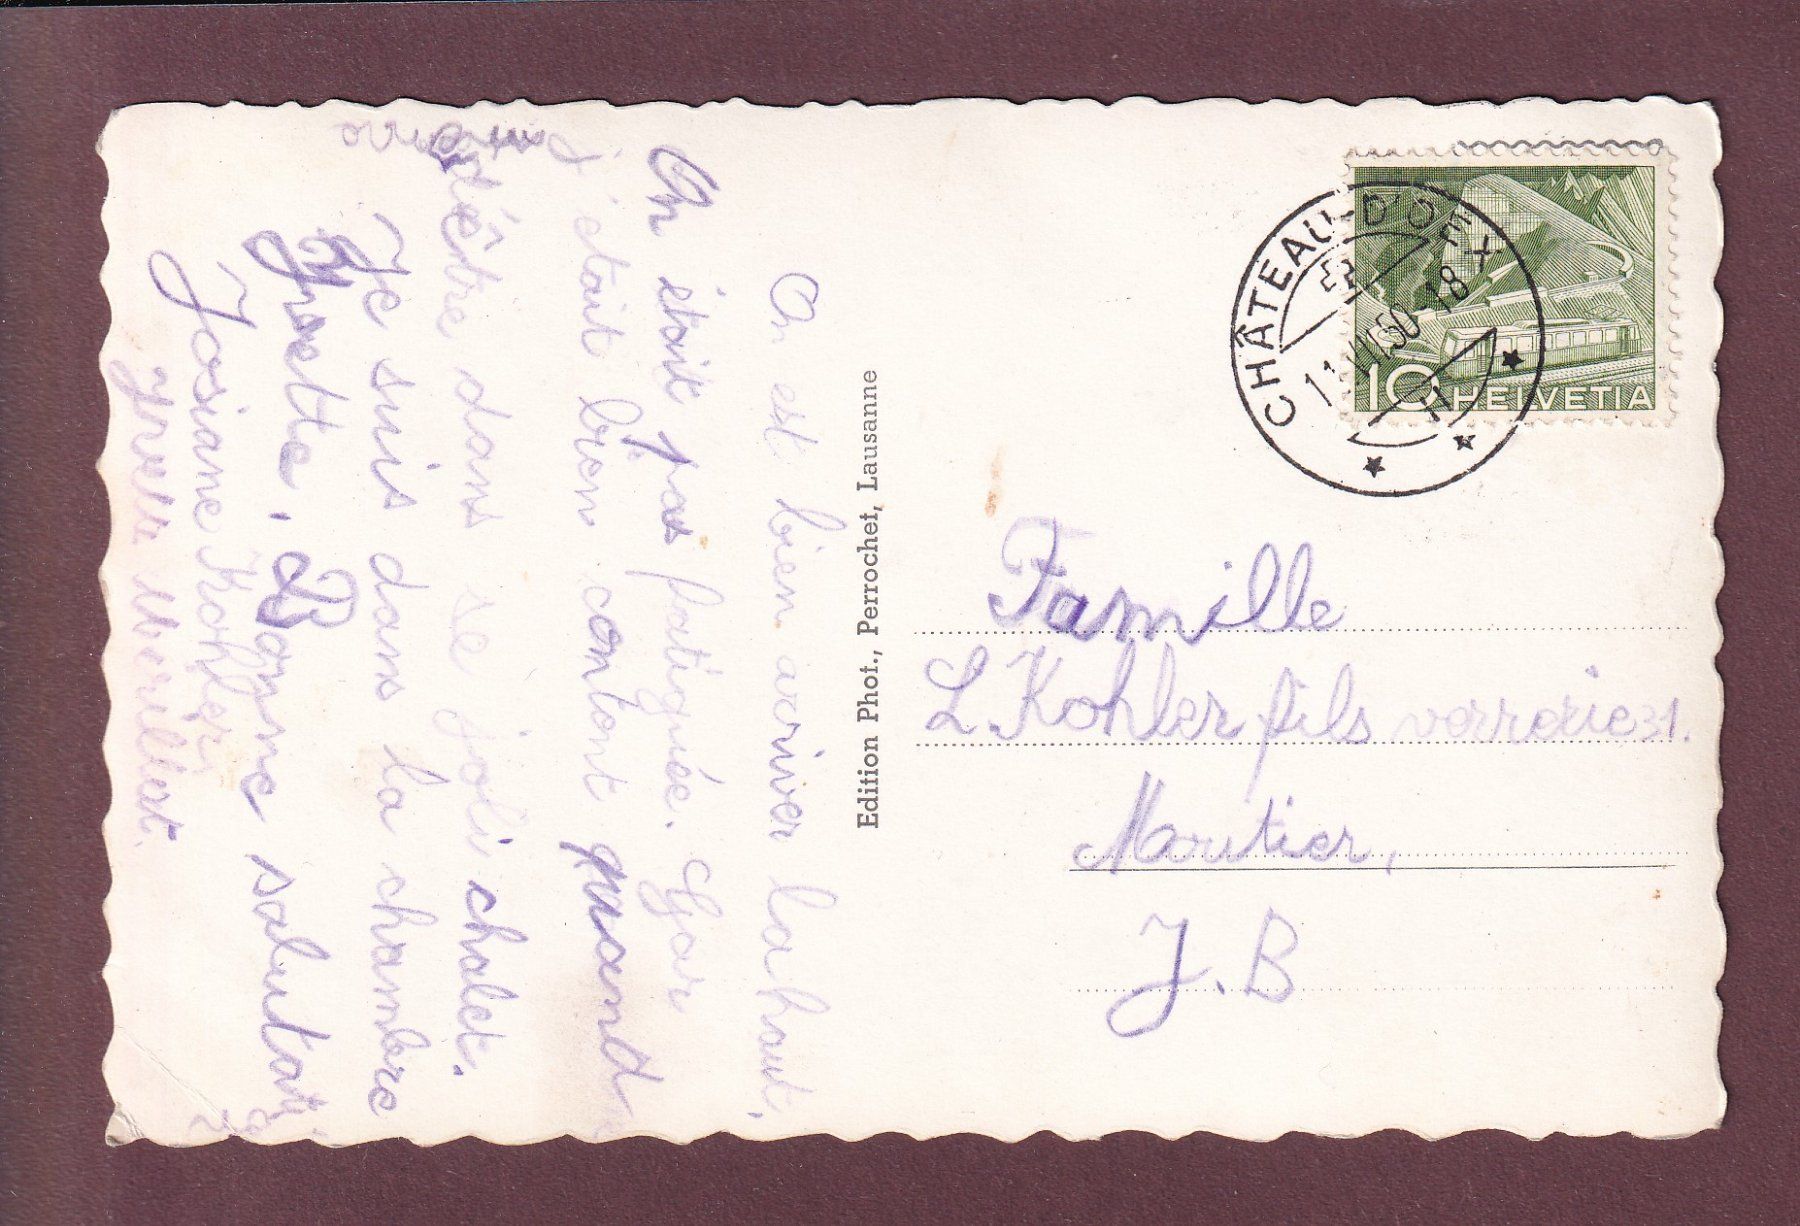 On est bien arriver la haut,
On était pas fatiguée. Gjar
j'étais bien content quand
d'être dans se joli chalet.
Je suis dans la chambre
Josette. Bonne salutat
Josiane Kohler
Edition Phot., Perrochet, Lausanne
CHÂTEAU-D'OEX
50-18
10 HELVETIA
Famille
L. Kohler fils verrerie 31.
Moutier,
J. B